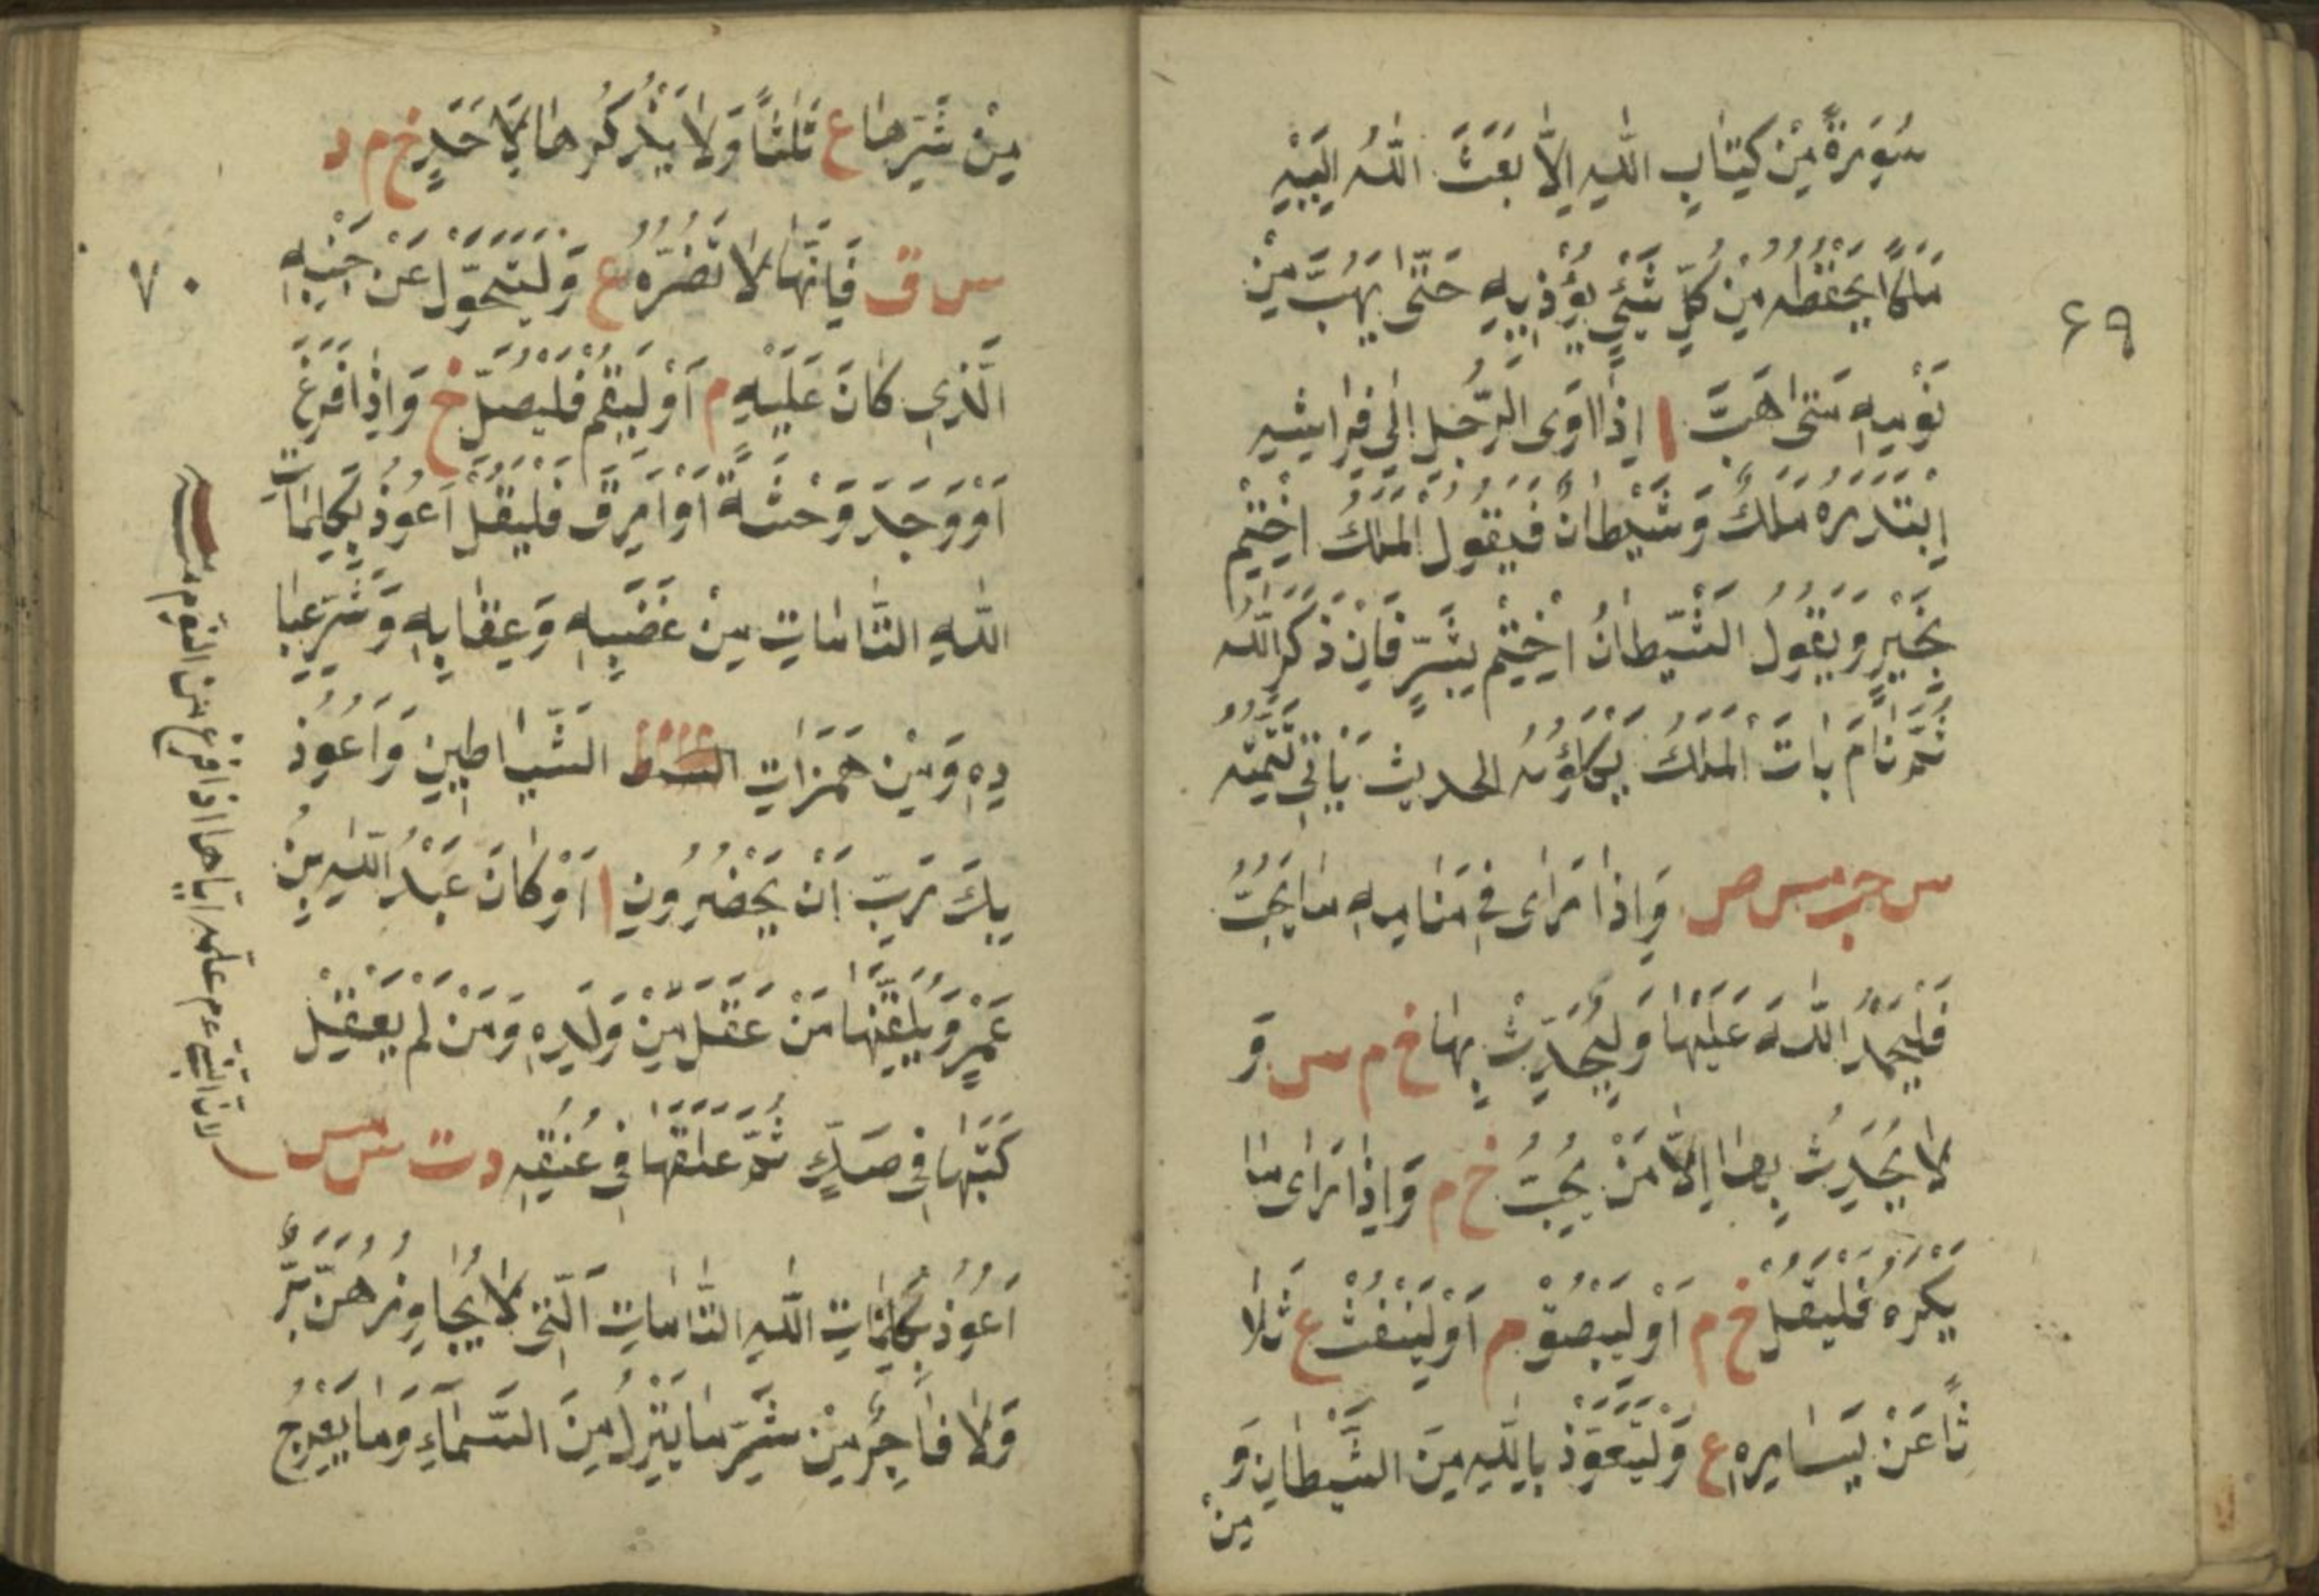 سُورَةً مِنْ كِتَابِ اللّٰهِ اِلَّا بَعَثَ اللّٰهُ اِلَيْهِ
مَلَكًا يَحْفَظُهُ مِنْ كُلِّ شَيْءٍ يُؤْذِيهِ حَتّٰى يَهُبَّ مِنْ
نَوْمِهِ مَتٰى هَبَّ ا اِذَا اَوَى الرَّجُلُ اِلٰى فِرَاشِهِ
اِبْتَدَرَهُ مَلَكٌ وَشَيْطَانٌ فَيَقُولُ الْمَلَكُ اخْتِمْ
بِخَيْرٍ وَيَقُولُ الشَّيْطَانُ اخْتِمْ بِشَرٍّ فَاِنْ ذَكَرَ اللّٰهَ
ثُمَّ نَامَ بَاتَ الْمَلَكُ يَكْلَؤُهُ الحديث يَاْتِي تَتِمَّتُهُ
س حب مس ص وَاِذَا رَاٰى فِي مَنَامِهِ مَا يُحِبُّ
فَلْيَحْمَدِ اللّٰهَ عَلَيْهَا وَلْيُحَدِّثْ بِهَا خ م س وَ
لَا يُحَدِّثْ بِهَا اِلَّا مَنْ يُحِبُّ خ م وَاِذَا رَاٰى مَا
يَكْرَهُ فَلْيَتْفُلْ خ م اَوْ لِيَبْصُقْ م اَوْ لِيَنْفُثْ ع ثَلَا
ثًا عَنْ يَسَارِهِ ع وَلْيَتَعَوَّذْ بِاللّٰهِ مِنَ الشَّيْطَانِ وَ
مِنْ
٦٩
مِنْ شَرِّهَا ع ثَلٰثًا وَلَا يَذْكُرْهَا لِاَحَدٍ خ م د
س ق فَاِنَّهَا لَا تَضُرُّهُ ع وَلْيَتَحَوَّلْ عَنْ جَنْبِهِ
الَّذِي كَانَ عَلَيْهِ م اَوْ لِيَقُمْ فَلْيُصَلِّ خ وَاِذَا فَزِعَ
اَوْ وَجَدَ وَحْشَةً اَوْ اَرِقَ فَلْيَقُلْ اَعُوذُ بِكَلِمَاتِ
اللّٰهِ التَّامَّاتِ مِنْ غَضَبِهِ وَعِقَابِهِ وَشَرِّ عِبَا
دِهِ وَمِنْ هَمَزَاتِ الشَّيَاطِينِ وَاَعُوذُ
بِكَ رَبِّ اَنْ يَحْضُرُونِ ا اَوْ كَانَ عَبْدُ اللّٰهِ بْنُ
عَمْرٍو يُلَقِّنُهَا مَنْ عَقَلَ مِنْ وَلَدِهِ وَمَنْ لَمْ يَعْقِلْ
كَتَبَهَا فِي صَكٍّ ثُمَّ عَلَّقَهَا فِي عُنُقِهِ د ت س مس
اَعُوذُ بِكَلِمَاتِ اللّٰهِ التَّامَّاتِ الَّتِي لَا يُجَاوِزُهُنَّ بَرٌّ
وَلَا فَاجِرٌ مِنْ شَرِّ مَا يَنْزِلُ مِنَ السَّمَآءِ وَمَا يَعْرُجُ
٧٠